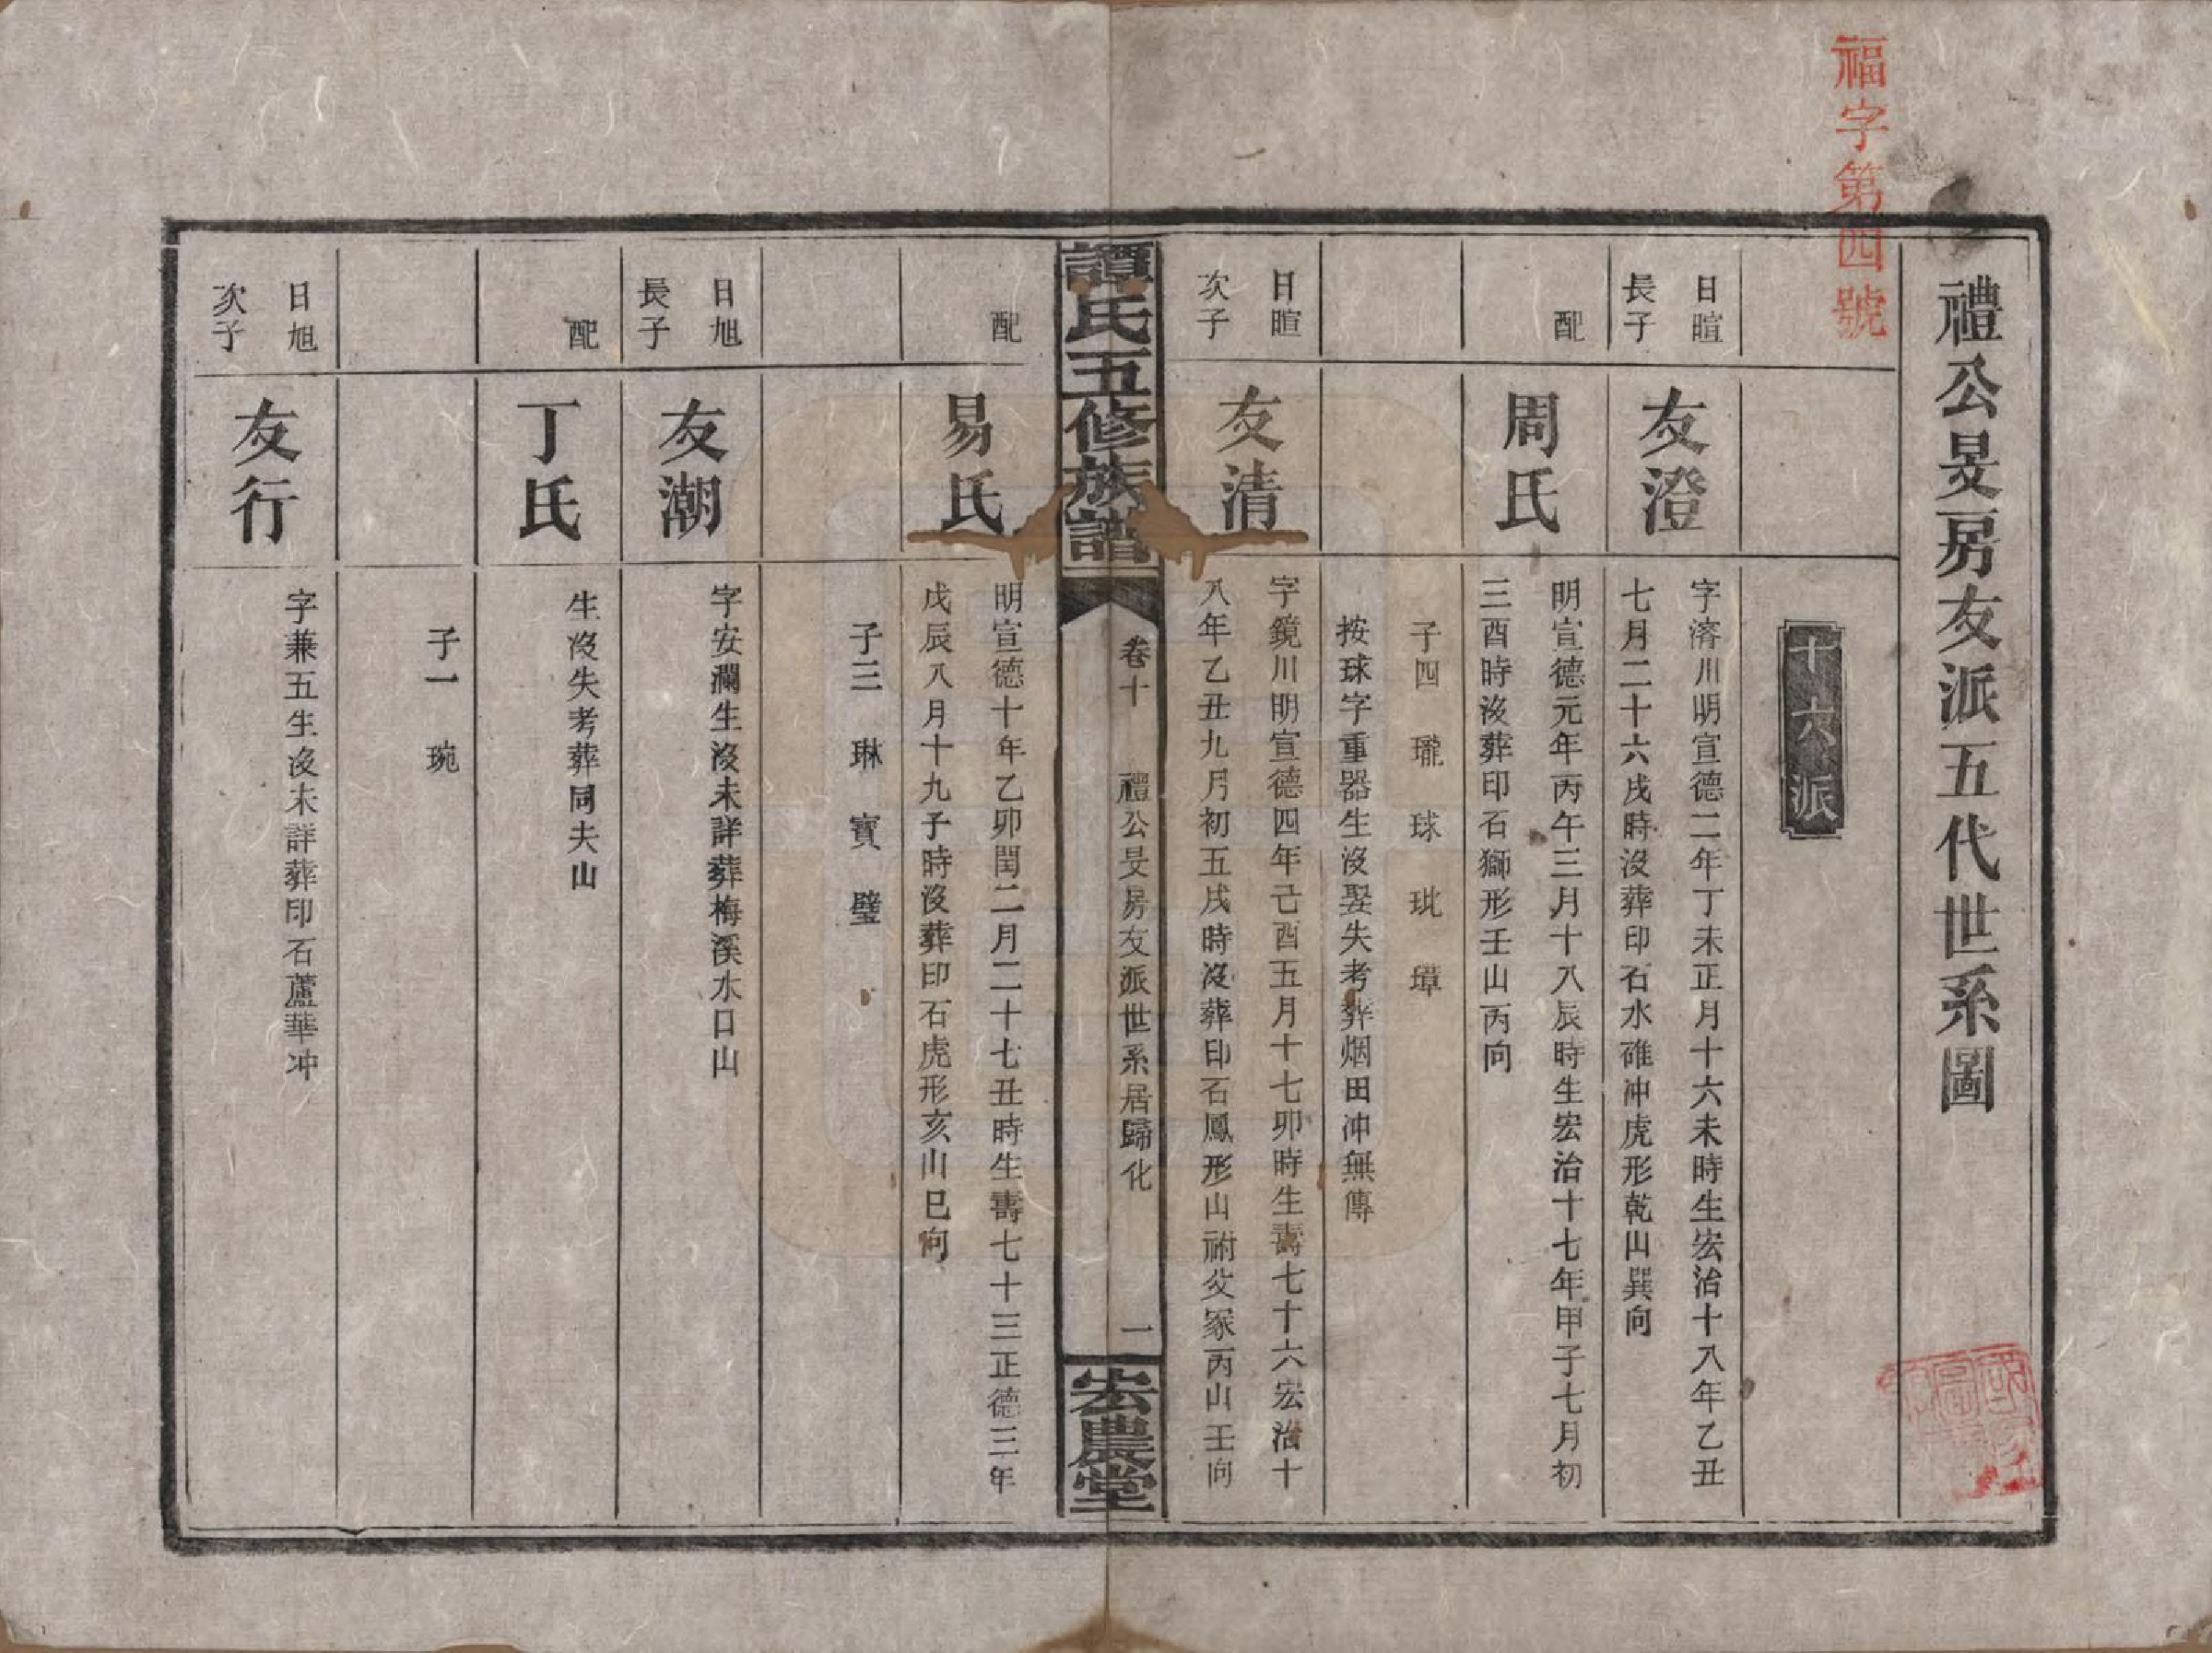 福字第四號
禮公旻房友派五代世系圖
十六派
日暄
長子
友澄
字濬川明宣德二年丁未正月十六未時生宏治十八年乙丑
七月二十六戌時沒葬印石水碓冲虎形乾山巽向
配
周氏
明宣德元年丙午三月十八辰時生宏治十七年甲子七月初
三酉時沒葬印石獅形壬山丙向
子四 瓏 球 玭 璋
按球字重器生沒娶失考葬烟田冲無傳
日暄
次子
友清
字鏡川明宣德四年己酉五月十七卯時生壽七十六宏治十
八年乙丑九月初五戌時沒葬印石鳳形山祔父冢丙山壬向
譚氏五修族譜
卷十
禮公旻房友派世系居歸化
一
宏農堂
配
易氏
明宣德十年乙卯閏二月二十七丑時生壽七十三正德三年
戊辰八月十九子時沒葬印石虎形亥山巳向
子三 琳 寳 璧
日旭
長子
友潮
字安瀾生沒未詳葬梅溪水口山
配
丁氏
生沒失考葬同夫山
子一 琬
日旭
次子
友行
字兼五生沒未詳葬印石蘆華冲